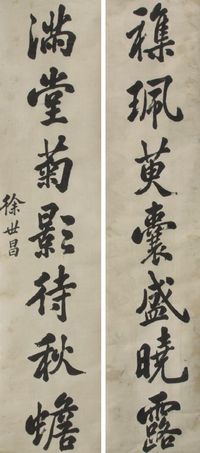 襍珮萸囊盛曉露
滿堂菊影待秋蟾
徐世昌